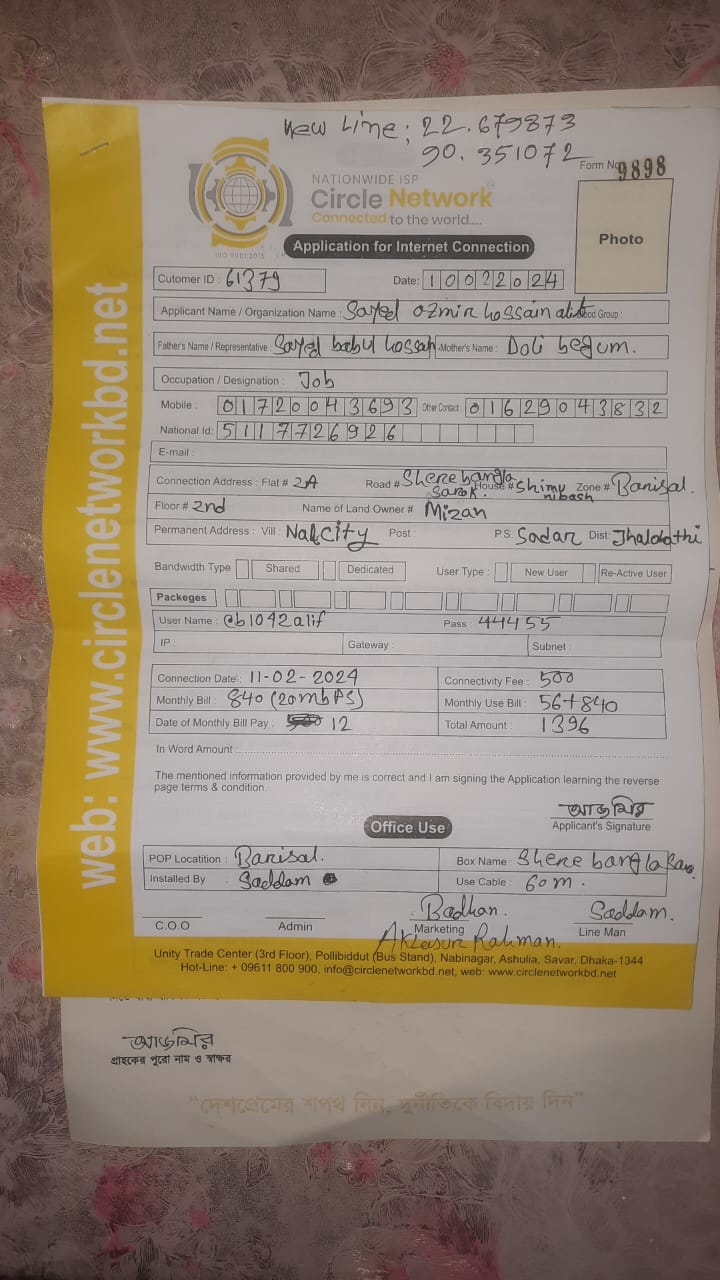 New Line: 22.679873
90.351072
Form No 9898
NATIONWIDE ISP
Circle Network
Connected to the world....
ISO 9001:2015
Application for Internet Connection
Photo
Cutomer ID : 61379 Date: 10022024
Applicant Name / Organization Name : Sayed ozmir hossain alif ood Group :
Father's Name / Representative Sayed babul hossain -Mother's Name : Doli begum.
Occupation / Designation : Job
Mobile : 01720043693 Other Contact 01629043832
National Id: 5117726926
E-mail :
Connection Address : Flat # 2A Road # Shere bangla Sarok. House # Shimu nibash Zone # Barisal.
Floor # 2nd Name of Land Owner # Mizan
Permanent Address : Vill : NalCity Post : P.S. Sadar Dist: Jhalokathi
Bandwidth Type Shared Dedicated User Type : New User Re-Active User
Packeges
User Name : @b1042alif Pass : 44455
IP : Gateway : Subnet :
Connection Date : 11-02-2024 Connectivity Fee : 500
Monthly Bill : 840 (20mbPS) Monthly Use Bill : 56+840
Date of Monthly Bill Pay : 12 Total Amount : 1396
In Word Amount :
The mentioned information provided by me is correct and I am signing the Application learning the reverse
page terms & condition.
আজমির
Applicant's Signature
Office Use
POP Locatition : Barisal. Box Name : Shere bangla
Installed By : Saddam Use Cable : 60m.
Badhan. Saddam.
C.O.O Admin Marketing Line Man
Rahman.
Unity Trade Center (3rd Floor), Pollibiddut (Bus Stand), Nabinagar, Ashulia, Savar, Dhaka-1344
Hot-Line: + 09611 800 900, info@circlenetworkbd.net, web: www.circlenetworkbd.net
web: www.circlenetworkbd.net
আজমির
গ্রাহকের পুরো নাম ও স্বাক্ষর
“দেশপ্রেমের শপথ নিন, দুর্নীতিকে বিদায় দিন”